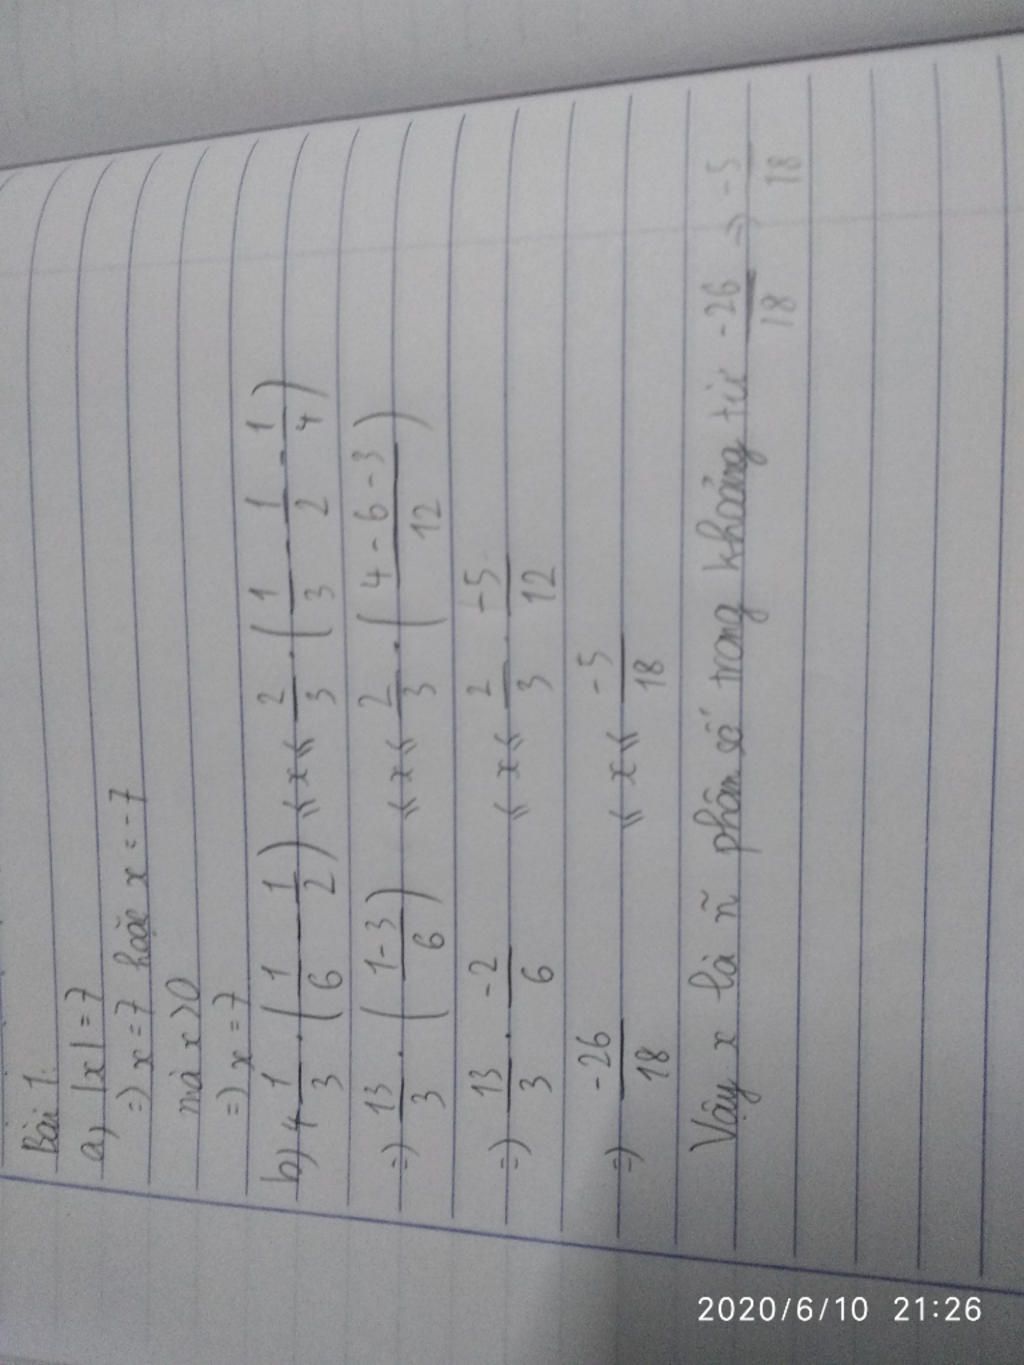 Bài 1:
a) |x| = 7
=) x = 7 hoặc x = -7
mà x > 0
=) x = 7
b) 4 1/3 . (1/6 - 1/2) ≤ x ≤ 2/3 . (1/3 - 1/2 - 1/4)
=) 13/3 . (1-3/6) ≤ x ≤ 2/3 . (4-6-3/12)
=) 13/3 . -2/6 ≤ x ≤ 2/3 . -5/12
=) -26/18 ≤ x ≤ -5/18
Vậy x là ñ phân số trong khoảng từ -26/18 =) -5/18
2020/6/10 21:26